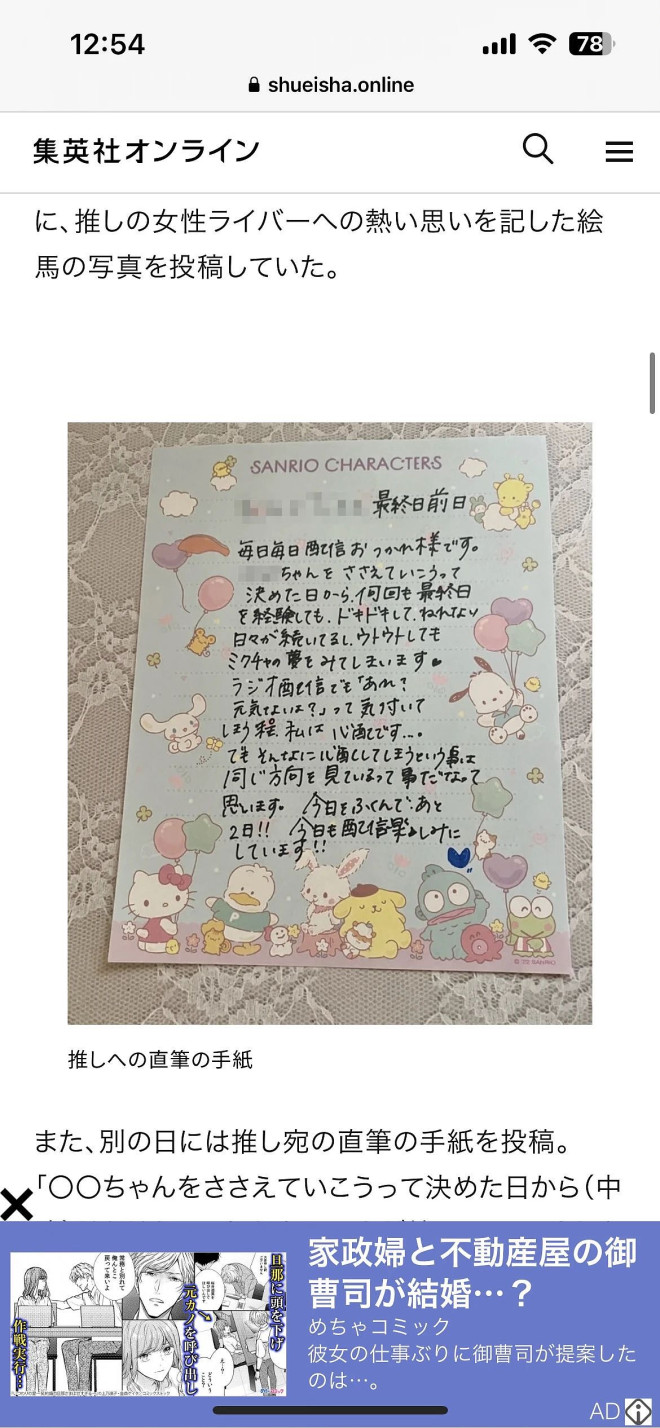 12:54
78
shueisha.online
集英社オンライン
に、推しの女性ライバーへの熱い思いを記した絵
馬の写真を投稿していた。
SANRIO CHARACTERS
最終日前日
毎日毎日配信おつかれ様です。
ちゃんをささえていこうって
決めた日から、何回も最終日
を経験しても、ドキドキして、ねれない
日々が続いてるし、ウトウトしても
ミクチャの夢をみてしまいます
ラジオ配信でも「あれ?
元気ないよ?」って気付いて
しまう程、私は心配です...。
でもそんなに心配してしまうという事は
同じ方向を見ているって事だなって
思います。今日をふくんで、あと
2日!! 今日も配信楽しみに
しています!!
推しへの直筆の手紙
また、別の日には推し宛の直筆の手紙を投稿。
「〇〇ちゃんをささえていこうって決めた日から(中
家政婦と不動産屋の御
曹司が結婚…？
めちゃコミック
彼女の仕事ぶりに御曹司が提案した
のは…。
旦那に頭を下げ
元カノを呼び出し
作戦実行…
AD